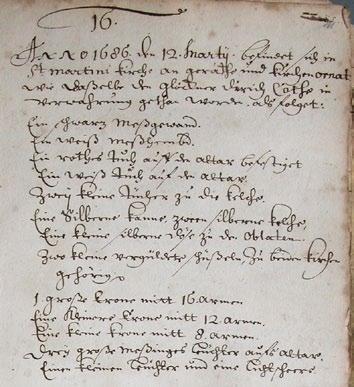 16.
ANNO 1686. den 12. Martij. befindet sich in
St Martini kirche an geräthe und kirchen ornat
wie daßelbe den glöckner Dirich in
verwahrung gethan worden, als folget:
Ein schwartz Meßgewand.
Ein weiß Meßhembd.
Ein rothes tuch auff den altar
Ein weiß tuch auf den altar.
Zweij kleine tücher zu die kelche.
Eine Silberne kanne, zween silberne kelche,
Eine kleine silberne zu den Oblaten.
Zwo kleine vergüldete schüßeln, zu kirchen
gehörig
1. große krone mitt 16. armen.
Eine kleinere krone mitt 12. armen.
Eine kleine krone mitt 8. armen.
Dreij große Meßinges leuchter aufs altar.
Einen kleinen leuchter und eine lichtscheere.